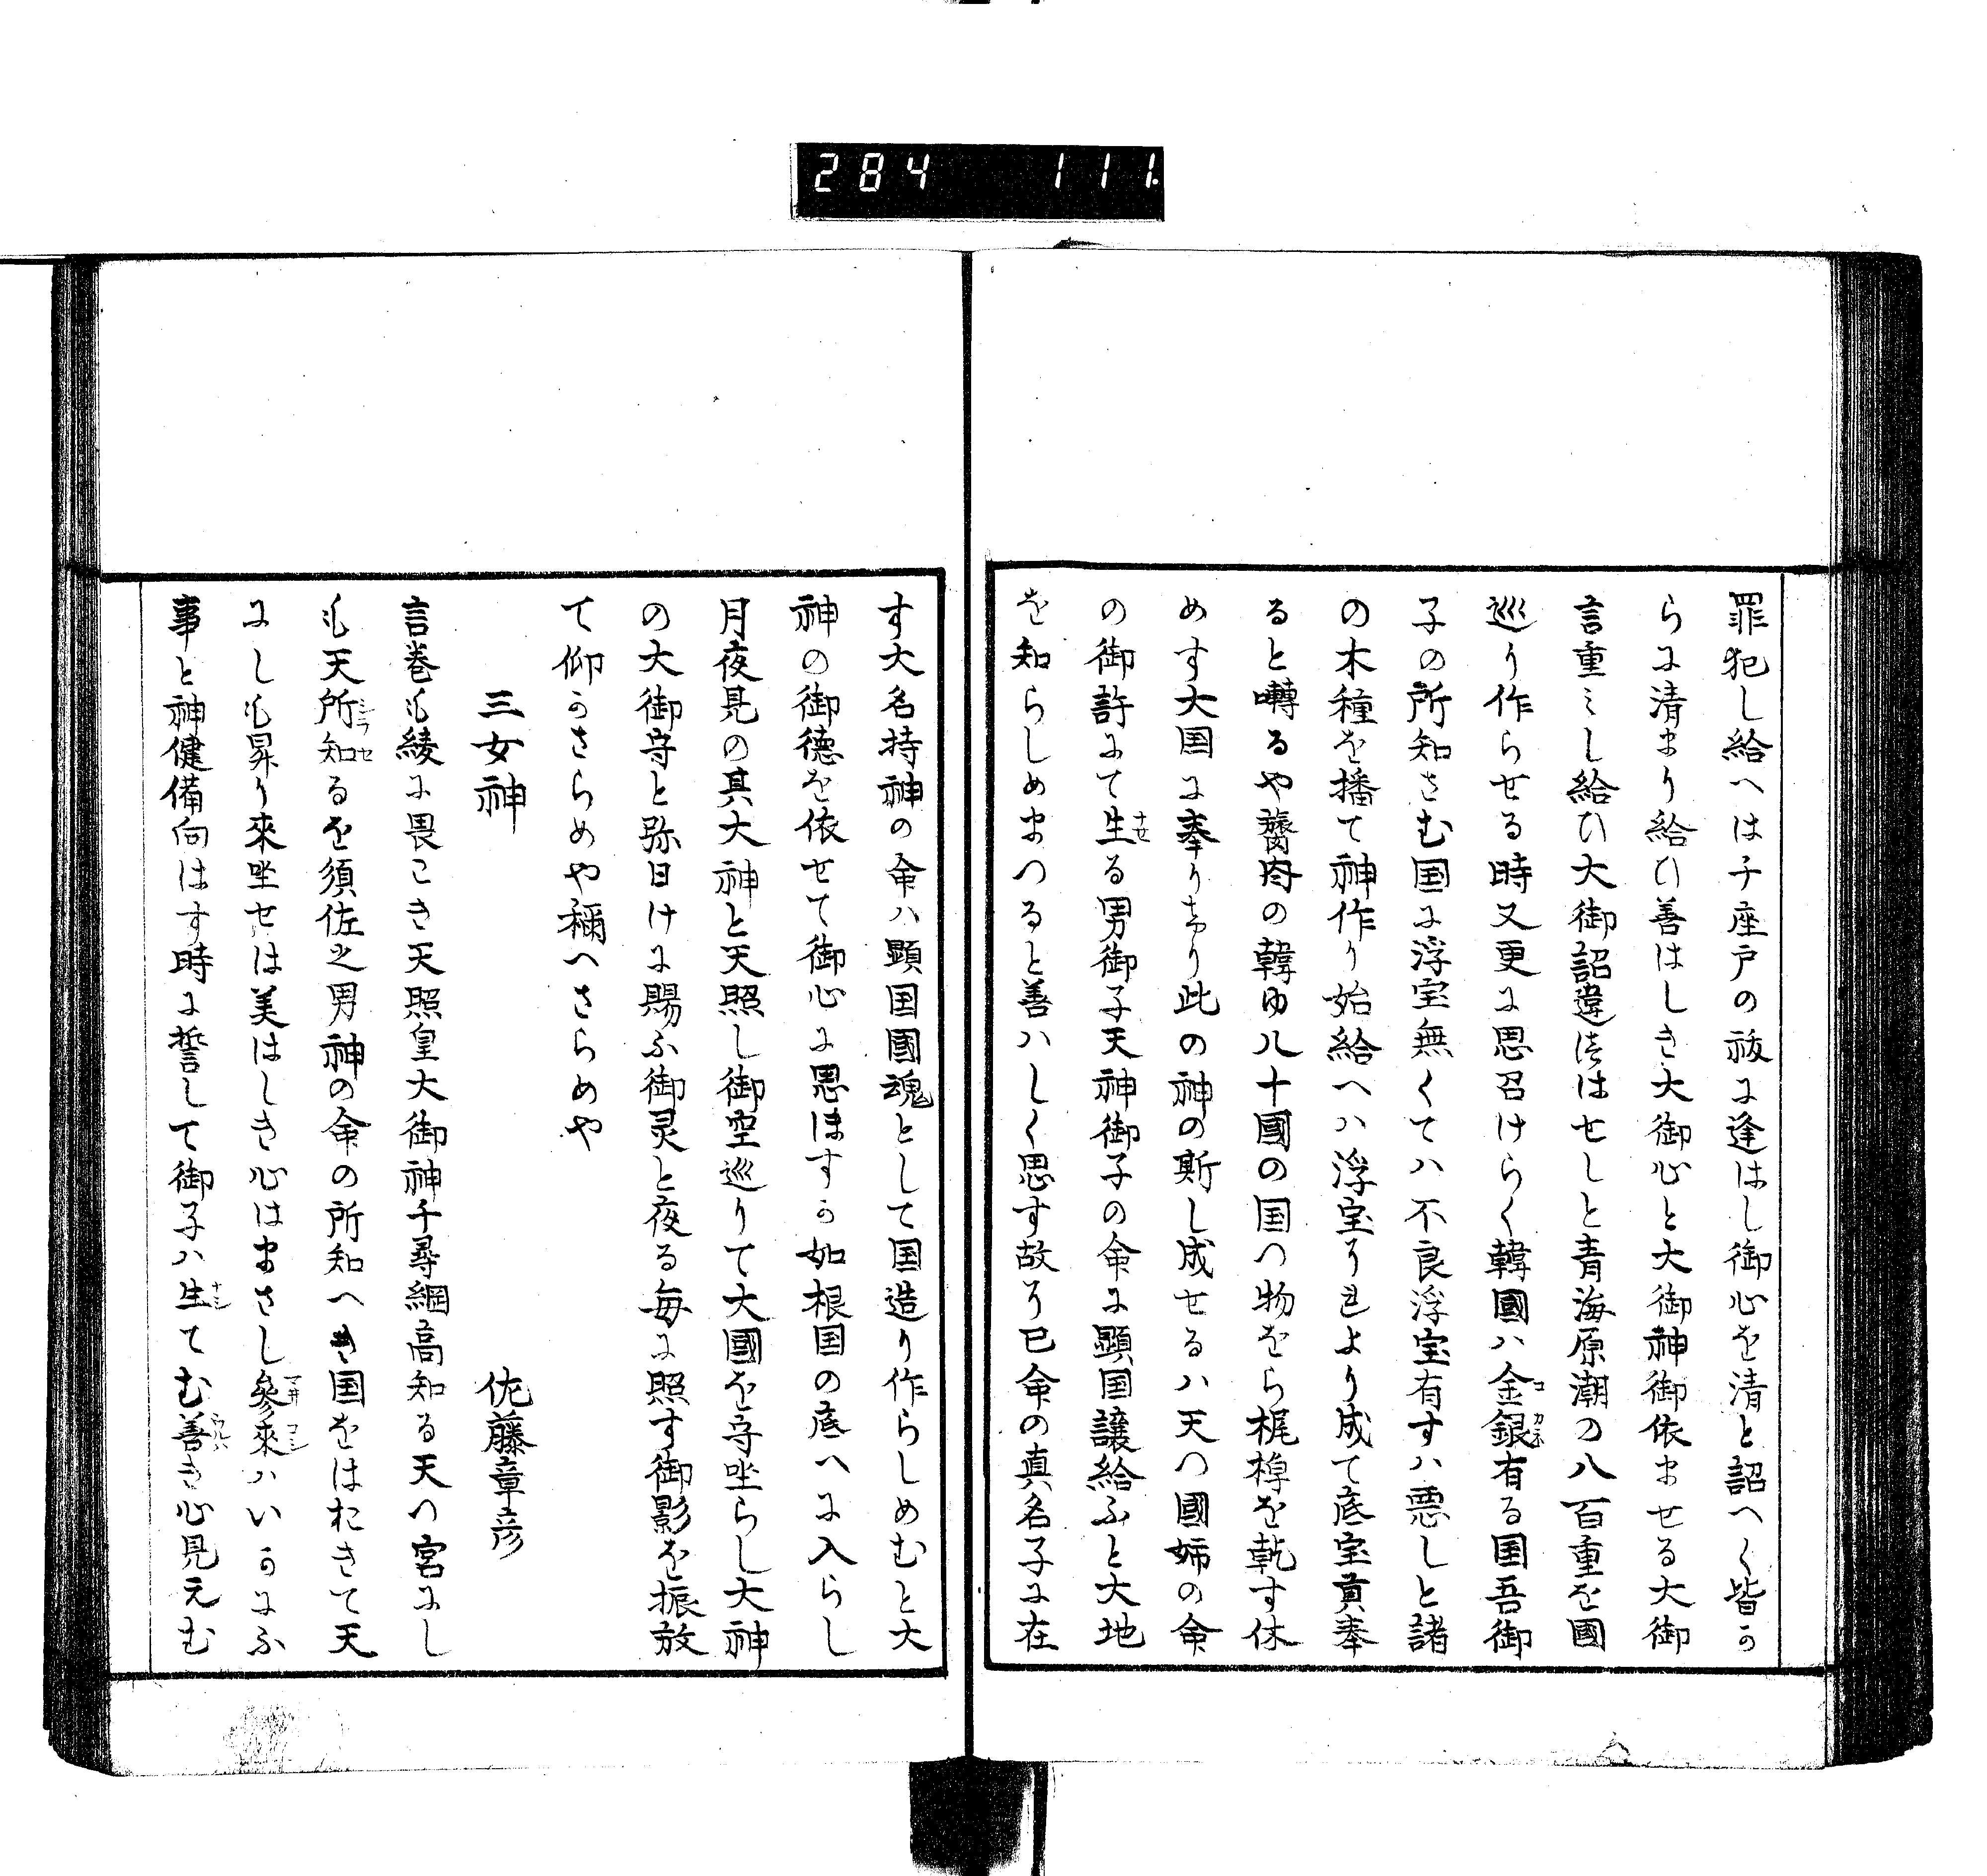 284 111
罪犯し給へは千座戸の祓に逢はし御心を清と詔へく皆か
らに清まり給ひ善はしき大御心と大御神御依ませる大御
言重ミし給ひ大御詔違はせしと青海原潮の八百重を國
巡り作らせる時又更に思召けらく韓國ハ金銀有る国吾御
子の所知さむ国に浮宝無くてハ不良浮宝有すハ悪しと諸
の木種を播て神作り始給へハ浮宝それより成て底宝貢奉
ると囀るや膂肉の韓ゆ八十國の国つ物をら梶棹を乾す休
めす大国に奉りけり此の神の斯し成せるハ天つ國姉の命
の御許にて生る男御子天神御子の命に顕国譲給ふと大地
を知らしめまつると善ハしく思す故そ已命の真名子に在
す大名持神の命ハ顕国國魂として国造り作らしめむと大
神の御徳を依せて御心に思ほすか如根国の底へに入らし
月夜見の其大神と天照し御空巡りて大國を守坐らし大神
の大御守と弥日けに賜ふ御灵と夜る毎に照す御影を振放
て仰かさらめや稱へさらめや
三女神 佐藤章彦
言巻も綾に畏こき天照皇大御神千尋綱高知る天つ宮にし
も天所知るを須佐之男神の命の所知へき国をはおきて天
にしも昇り來坐せは美はしき心はまさし參來ハいかにふ
事と神健備向はす時に誓して御子ハ生てむ善き心見えむ